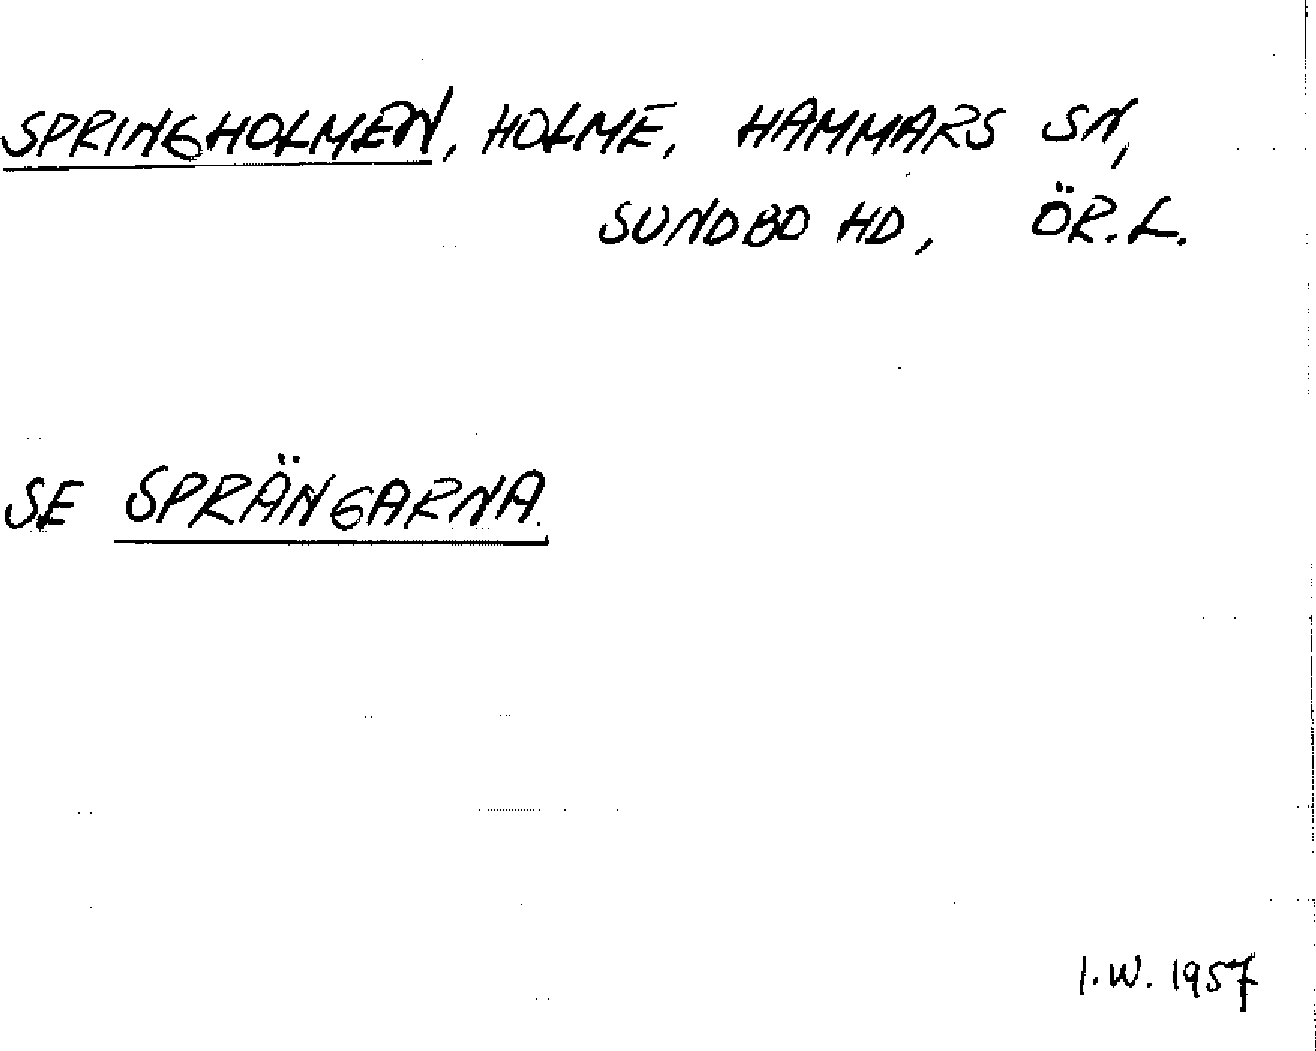 SPRINGHOLMEN, HOLME, HAMMARS SN,
SUNDBO HD, ÖR.L.
SE SPRÄNGARNA.
I.W. 1957